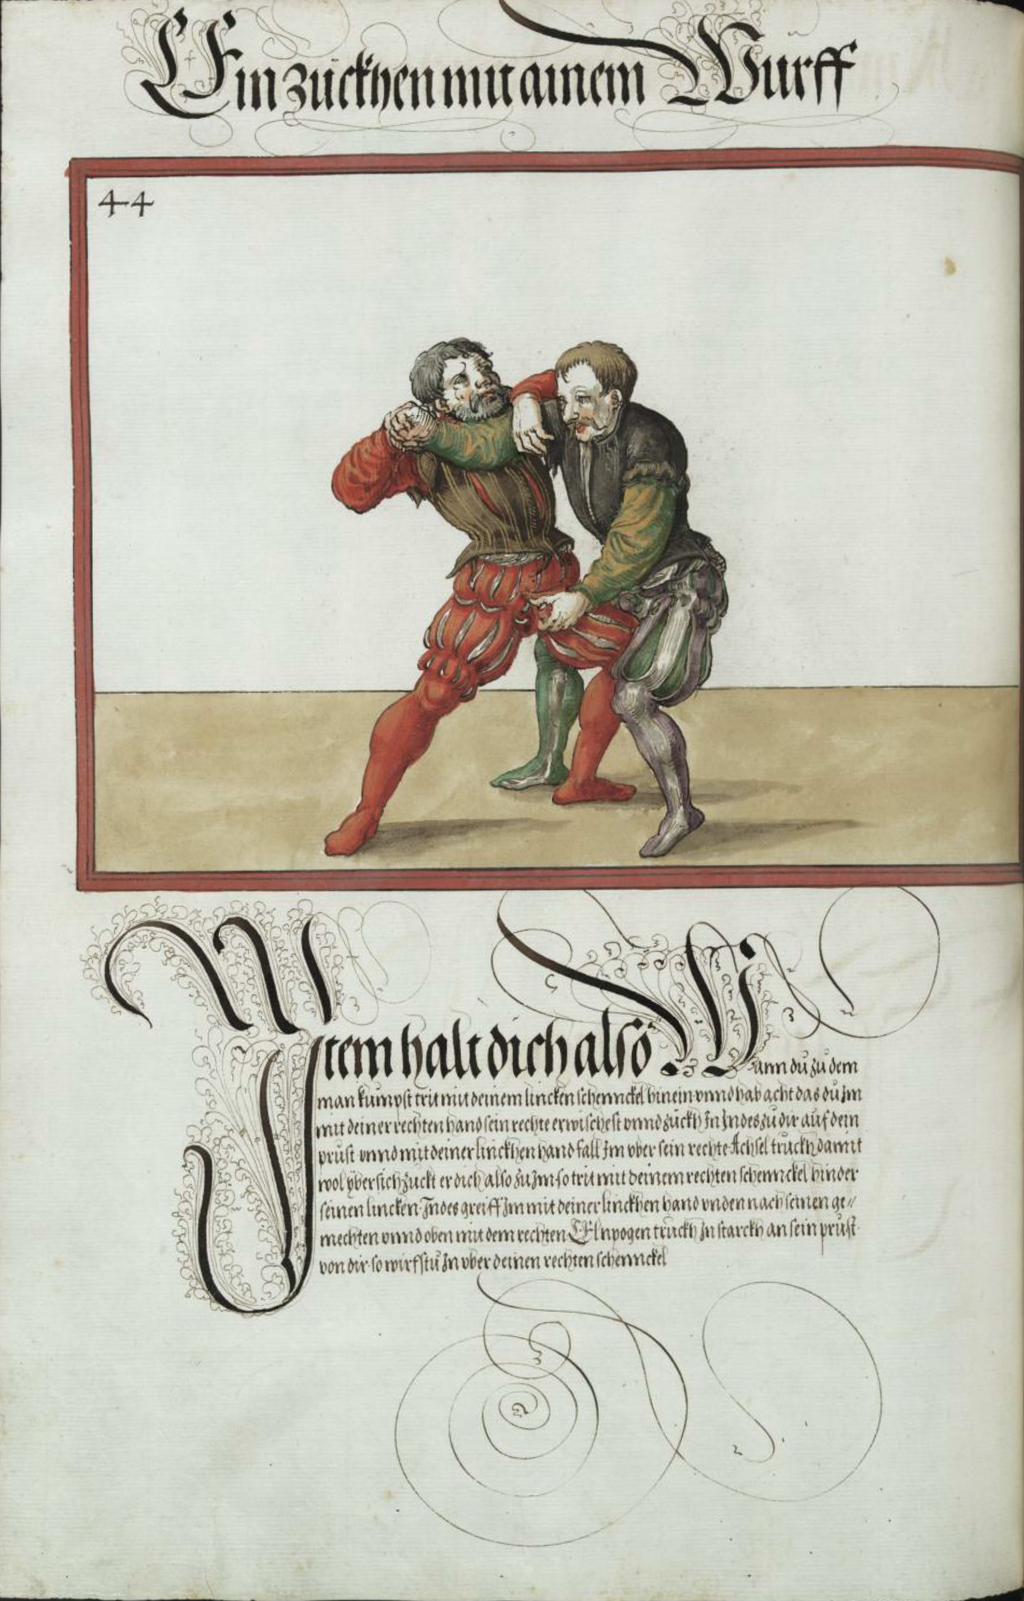 Ein zuckhen mit ainem Wurff
44
Item halt dich also Wann du zu dem
man kumpst trit mit deinem lincken schennckel hinein vnnd hab acht das du Im
mit deiner rechten hand sein rechte erwischest vnnd zuckh In Indes zu dir auf dein
prust vnnd mit deiner linckhen hand fall Im vber sein rechte Achsel truckh damit
wol vbersich zuckt er dich also zu Im so trit mit deinem rechten schennckel hinder
seinen lincken Indes greiff Im mit deiner linckhen hand vnden nach seinen ge//
mechten vnnd oben mit dem rechten Elnpogen truckh In starckh an sein prust
von dir so wirfstu In vber deinen rechten schennckel